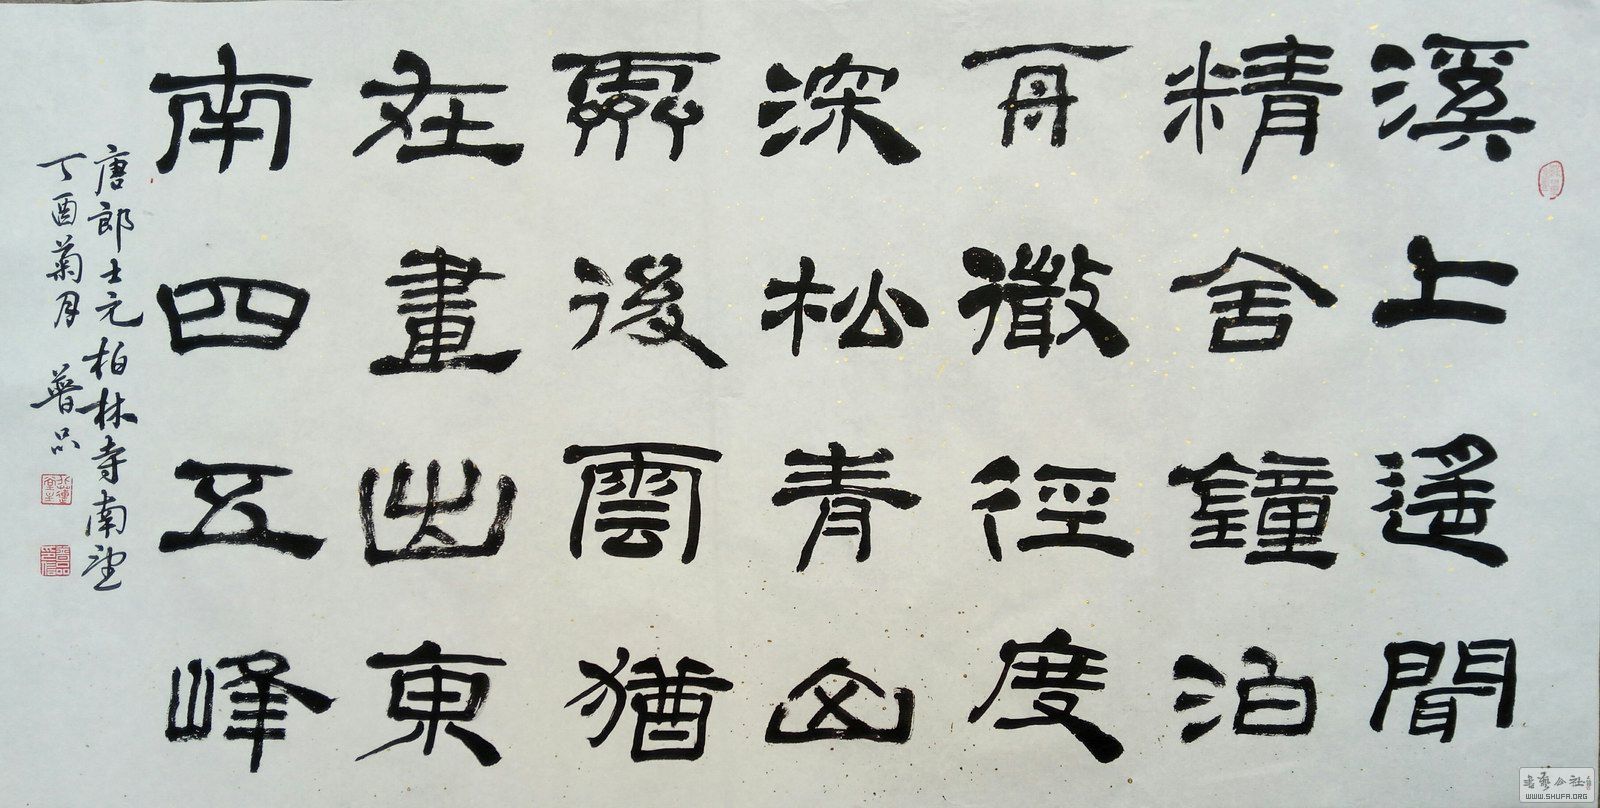 溪上遙聞
精舍鐘泊
舟微徑度
深松青山
霽後雲猶
在畫出東
南四五峰
唐郎士元柏林寺南望
丁酉菊月 普品
書藝公社
WWW.SHUFA.ORG